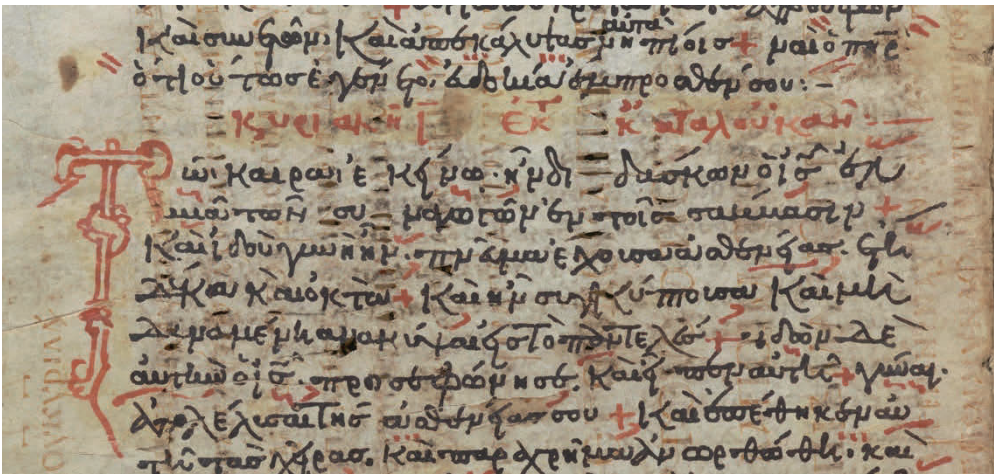 Καὶ συνετῶν, Καὶ ἀπεκάλυψας αὐτὰ νηπίοις + ναὶ ὁ πηρ
ὅτι οὕτως ἐγένετο εὐδοκία ἔμπροσθέν σου: –
κυριακὴ ι ἐκ τ κατὰ λουκᾶν
Τῶ καιρῶ ἐκείνω. ἦν διδάσκων ὁ ις ἐν
μιᾶ τῶν συναγωγῶν ἐν τοῖς σάββασιν +
Καὶ ἰδοὺ γυνὴ ἦν. πνα ἔχουσα ἀσθενείας. ἔτη
δέκα Καὶ ὀκτὼ + Καὶ ἦν συγκύπτουσα Καὶ μὴ
δυναμένη ἀνακύψαι εἰς τὸ παντελές + ἰδὼν δὲ
αὐτὴν ὁ ις. προσεφώνησε. Καὶ εἶπεν αὐτῆ + γύναι.
ἀπολέλυσαι τῆς ἀσθενείας σου + Καὶ ἐπέθηκεν αὐ
τῆ τὰς χεῖρας. Καὶ παραχρῆμα ἀνωρθώθη. καὶ